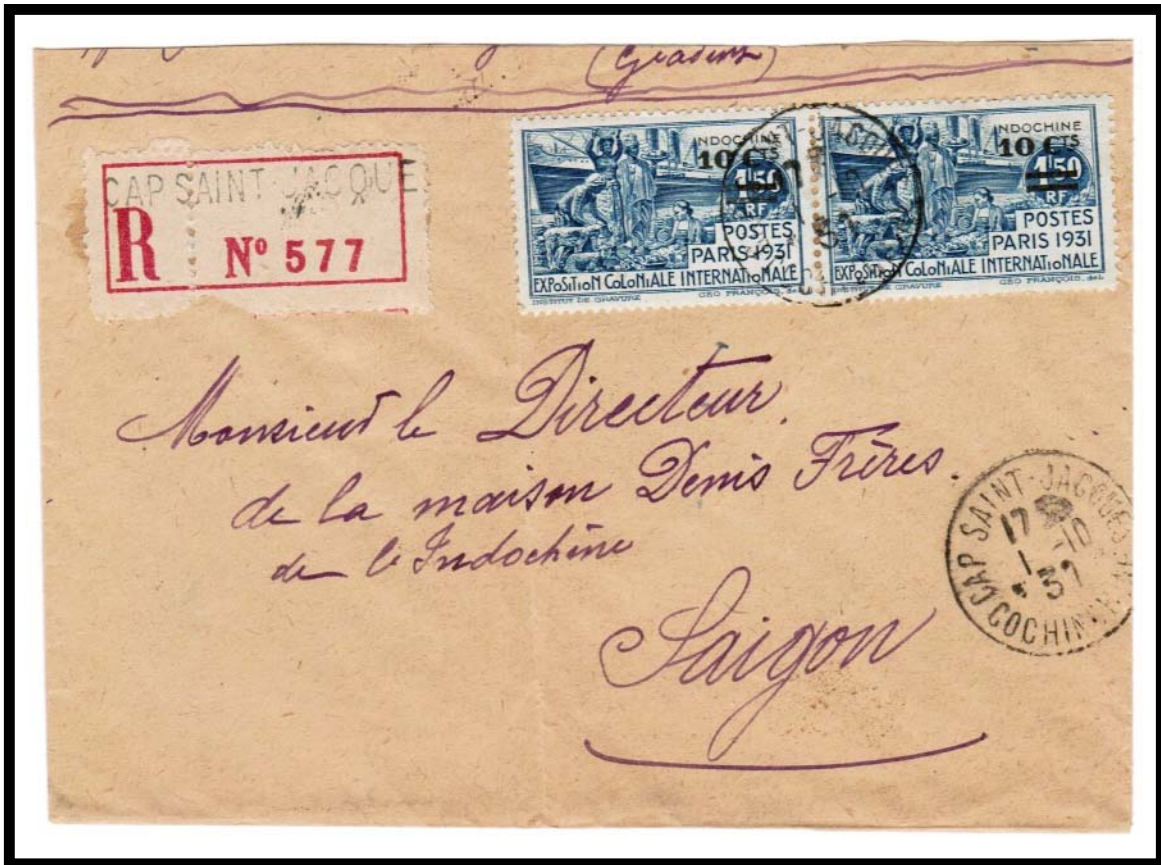 (Gradins)
CAP SAINT JACQUE
R
Nº 577
INDOCHINE
10 CTS
1F50
RF
POSTES
PARIS 1931
EXPOSITION COLONIALE INTERNATIONALE
INSTITUT DE GRAVURE GEO FRANÇOIS, del.
INDOCHINE
10 CTS
1F50
RF
POSTES
PARIS 1931
EXPOSITION COLONIALE INTERNATIONALE
INSTITUT DE GRAVURE GEO FRANÇOIS, del.
Monsieur le Directeur.
de la maison Denis Frères.
de l'Indochine
Saigon
CAP SAINT-JACQUES
17
1 -10
31
COCHINCHINE